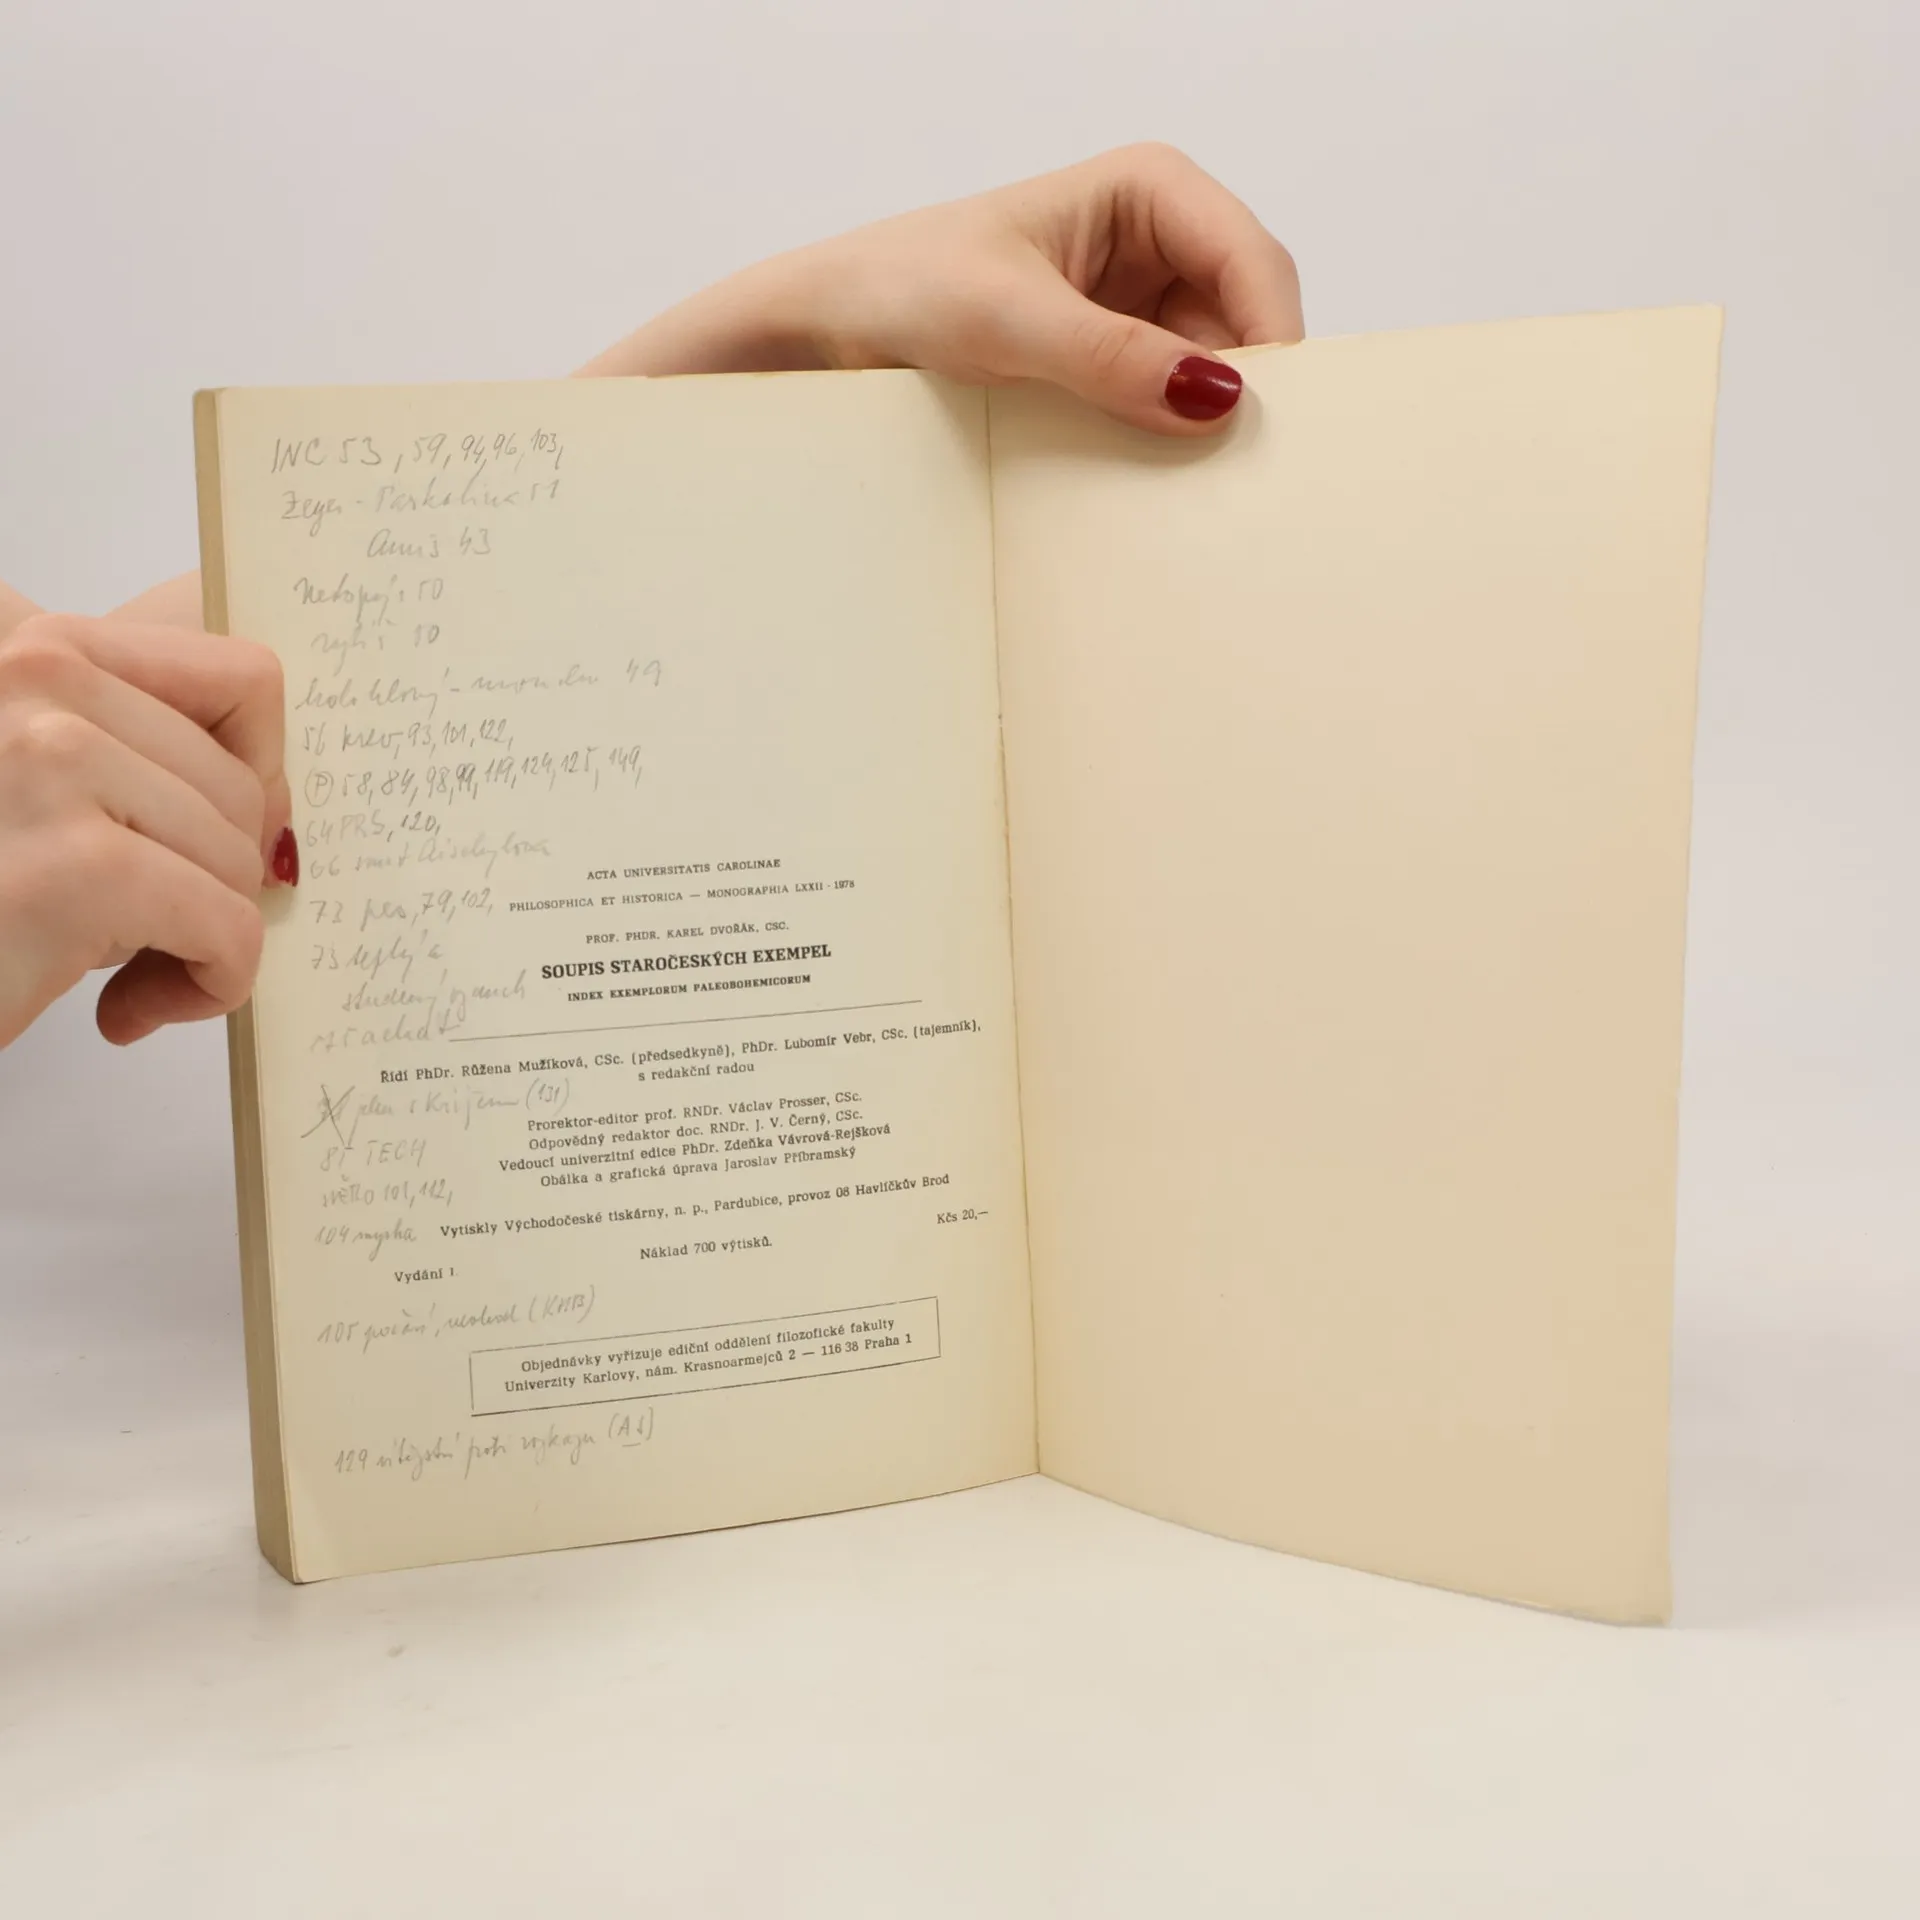 INC 53, 59, 94, 96, 103,
Zeyer - 51
Amis 43
Netopýr 50
50
49
56 krev, 93, 101, 122,
P 58, 84, 98, 99, 119, 124, 125, 149,
64 PRS, 120,
66 smrt Aischylova
ACTA UNIVERSITATIS CAROLINAE
PHILOSOPHICA ET HISTORICA — MONOGRAPHIA LXXII - 1978
73 pes, 79, 102,
PROF. PHDR. KAREL DVOŘÁK, CSC.
73 teplý a
SOUPIS STAROČESKÝCH EXEMPEL
studený
INDEX EXEMPLORUM PALEOBOHEMICORUM
achat
Řídí PhDr. Růžena Mužíková, CSc. (předsedkyně), PhDr. Lubomír Vebr, CSc. (tajemník),
s redakční radou
jelen s křížem (131)
Prorektor-editor prof. RNDr. Václav Prosser, CSc.
Odpovědný redaktor doc. RNDr. J. V. Černý, CSc.
Vedoucí univerzitní edice PhDr. Zdeňka Vávrová-Rejšková
Obálka a grafická úprava Jaroslav Příbramský
TECH
SVĚTLO 101, 112,
104 myska
Vytiskly Východočeské tiskárny, n. p., Pardubice, provoz 08 Havlíčkův Brod
Kčs 20,—
Náklad 700 výtisků.
Vydání 1.
105
Objednávky vyřizuje ediční oddělení filozofické fakulty
Univerzity Karlovy, nám. Krasnoarmejců 2 — 116 38 Praha 1
129 vítězství proti rozkazu